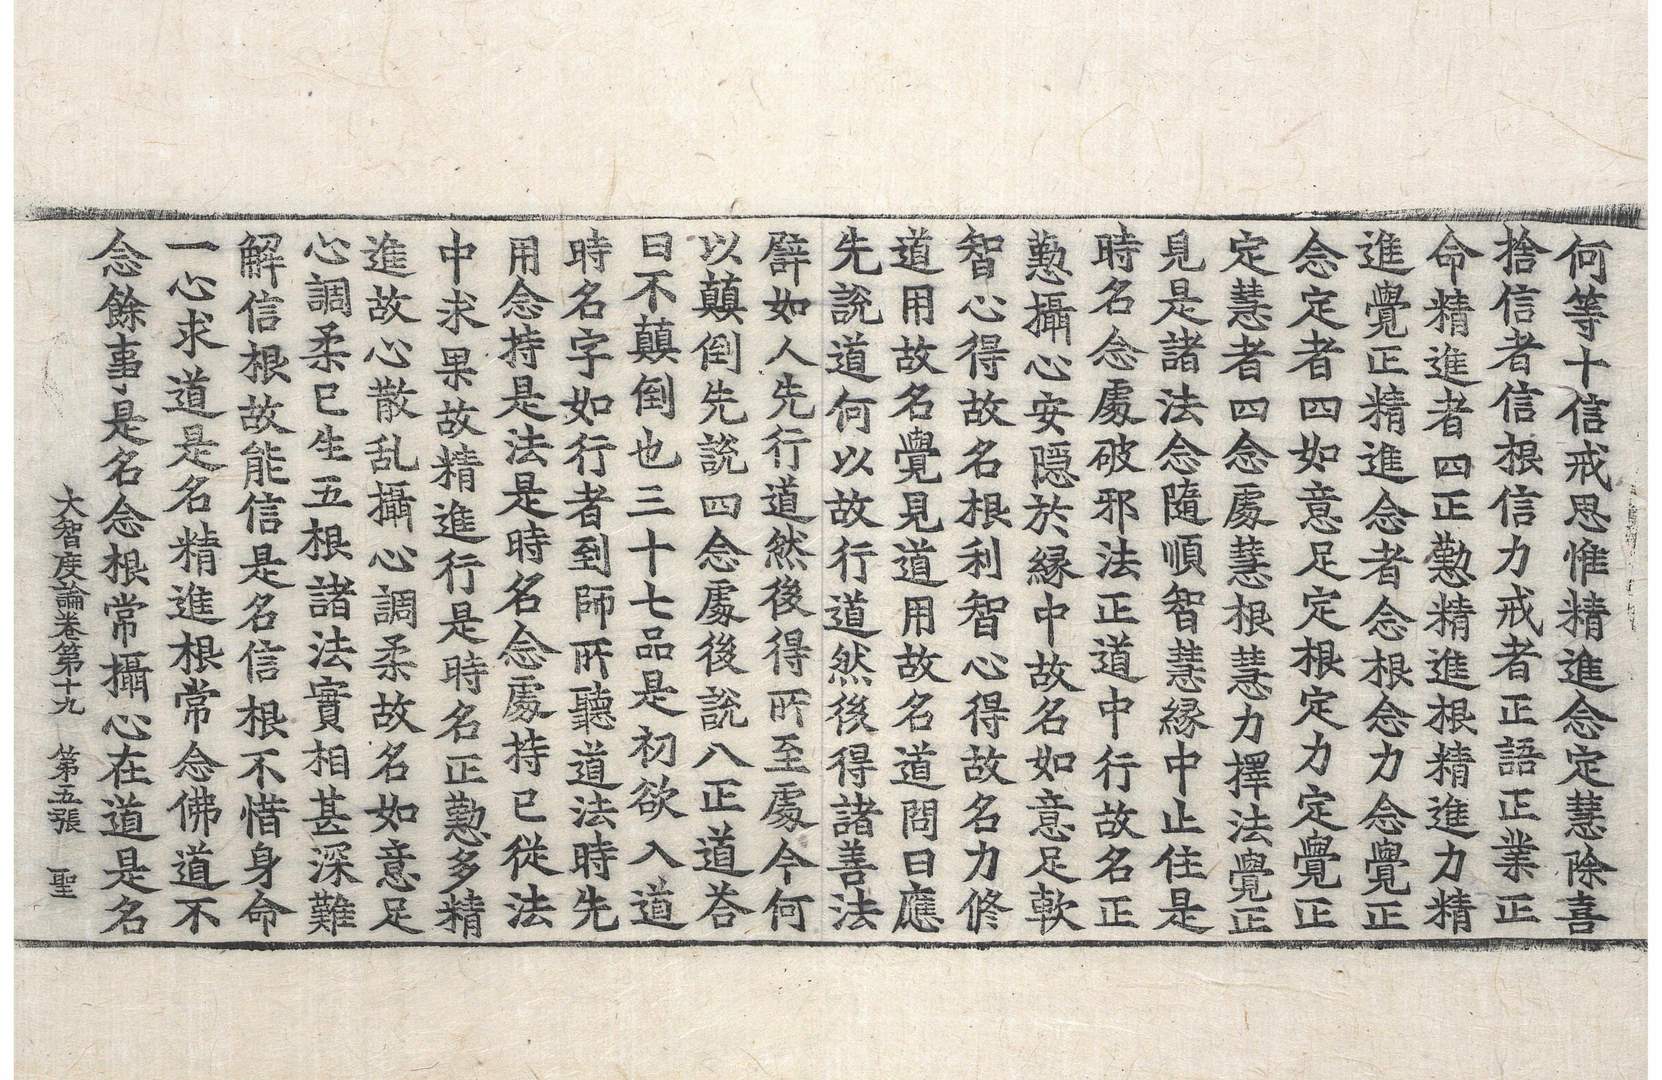 何等十信戒思惟精進念定慧除喜
捨信者信根信力戒者正語正業正
命精進者四正懃精進根精進力精
進覺正精進念者念根念力念覺正
念定者四如意足定根定力定覺正
定慧者四念處慧根慧力擇法覺正
見是諸法念隨順智慧緣中止住是
時名念處破邪法正道中行故名正
懃攝心安隱於緣中故名如意足軟
智心得故名根利智心得故名力修
道用故名覺見道用故名道問曰應
先說道何以故行道然後得諸善法
譬如人先行道然後得所至處今何
以顛倒先說四念處後說八正道荅
曰不顛倒也三十七品是初欲入道
時名字如行者到師所聽道法時先
用念持是法是時名念處持已從法
中求果故精進行是時名正懃多精
進故心散乱攝心調柔故名如意足
心調柔已生五根諸法實相甚深難
解信根故能信是名信根不惜身命
一心求道是名精進根常念佛道不
念餘事是名念根常攝心在道是名
大智度論卷第十九 第五張 聖